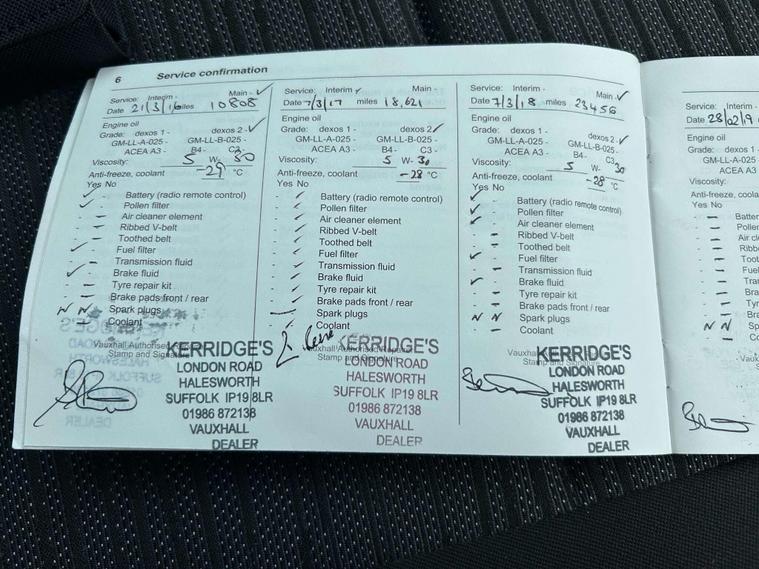 6 Service confirmation
Service: Interim - Main - ✓
Date 21/3/16 miles 10808
Engine oil
Grade: dexos 1 - dexos 2 - ✓
GM-LL-A-025 - GM-LL-B-025 -
ACEA A3 - B4 - C3 -
Viscosity: 5 W- 30
Anti-freeze, coolant -29 °C
Yes No
Battery (radio remote control)
Pollen filter
Air cleaner element
Ribbed V-belt
Toothed belt
Fuel filter
Transmission fluid
Brake fluid
Tyre repair kit
Brake pads front / rear
N N Spark plugs
Coolant
Vauxhall Authorised
Stamp and Signature
KERRIDGE'S
LONDON ROAD
HALESWORTH
SUFFOLK IP19 8LR
01986 872138
VAUXHALL
DEALER
Service: Interim ✓ Main -
Date 7/3/17 miles 18,621
Engine oil
Grade: dexos 1 - dexos 2 ✓
GM-LL-A-025 - GM-LL-B-025 -
ACEA A3 - B4 - C3 -
Viscosity: 5 W- 30
Anti-freeze, coolant -28 °C
Yes No
Battery (radio remote control)
Pollen filter
Air cleaner element
Ribbed V-belt
Toothed belt
Fuel filter
Transmission fluid
Brake fluid
Tyre repair kit
Brake pads front / rear
Spark plugs
Coolant
Vauxhall Authorised
Stamp and
KERRIDGE'S
LONDON ROAD
HALESWORTH
SUFFOLK IP19 8LR
01986 872138
VAUXHALL
DEALER
Service: Interim - Main - ✓
Date 7/3/18 miles 23456
Engine oil
Grade: dexos 1 - dexos 2 - ✓
GM-LL-A-025 - GM-LL-B-025 -
ACEA A3 - B4 - C3 -
Viscosity: 5 W- 30
Anti-freeze, coolant -28 °C
Yes No
Battery (radio remote control)
Pollen filter
Air cleaner element
Ribbed V-belt
Toothed belt
Fuel filter
Transmission fluid
Brake fluid
Tyre repair kit
Brake pads front / rear
N N Spark plugs
Coolant
Stamp and Signature
KERRIDGE'S
LONDON ROAD
HALESWORTH
SUFFOLK IP19 8LR
01986 872138
VAUXHALL
DEALER
Service: Interim -
Date 28/02/19
Engine oil
Grade: dexos 1 -
GM-LL-A-025
ACEA A3
Viscosity:
Anti-freeze, coolant
Yes No
N N